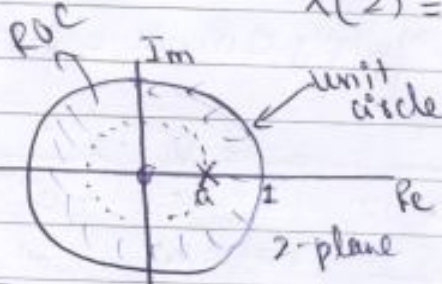 X(z) =
ROC
Im
unit
circle
a
1
Re
z-plane